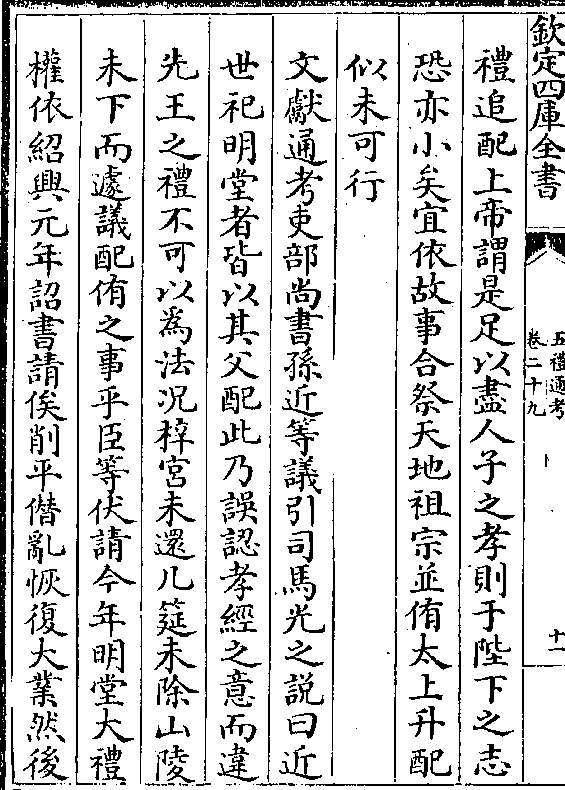 欽定四庫全書
五禮通考
卷二十九
十一
禮追配上帝謂是足以盡人子之孝則于陛下之志
恐亦小矣宜依故事合祭天地祖宗並侑太上升配
似未可行
文獻通考吏部尚書孫近等議引司馬光之說曰近
世祀明堂者皆以其父配此乃誤認孝經之意而違
先王之禮不可以為法况梓宮未還几筵未除山陵
未下而遽議配侑之事乎臣等伏請今年明堂大禮
權依紹興元年詔書請俟削平僭亂恢復大業然後